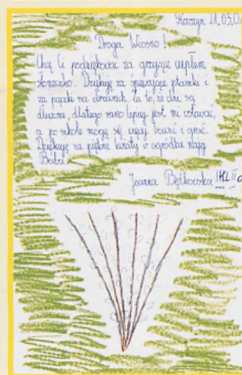 21.03.0
Droga Wiosno!
Chcę Ci podziękować za grzejące ciepłem
słoneczko. Dziękuję za śpiewające ptaszki i
za pąki na drzewach, za to, że dni są
dłuższe, dlatego rano lepiej jest mi wstawać,
a po szkole mogę się dłużej bawić i grać.
Dziękuję za piękne kwiaty w ogródku mojej
Babci.
Joanna kl. II